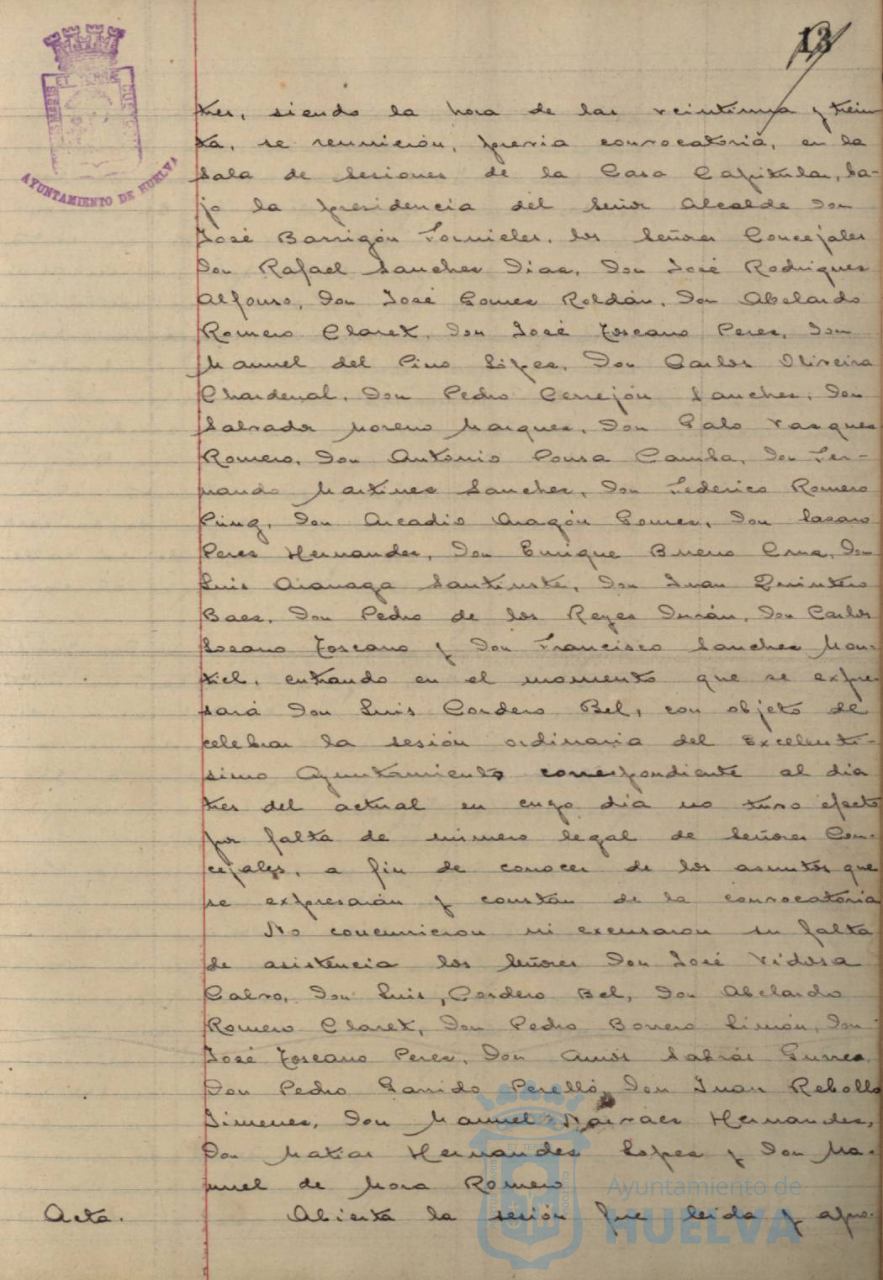 13
AYUNTAMIENTO DE HUELVA
tres, siendo la hora de las veintiuna y trein-
ta, se reunieron, previa convocatoria, en la
Sala de Sesiones de la Casa Capitular, ba-
jo la presidencia del Señor Alcalde Don
José Barrigón Fornieles, los Señores Concejales
Don Rafael Sanchez Diaz, Don José Rodriguez
Alfonso, Don José Gomez Roldán, Don Abelardo
Romero Claret, Don José Toscano Perez, Don
Manuel del Pino López, Don Carlos Oliveira
Chardenal, Don Pedro Cerrejón Sanchez, Don
Salvador Moreno Marquez, Don Galo Vazquez
Romero, Don Antonio Pousa Camba, Don Fer-
nando Martinez Sanchez, Don Federico Romero
Ping, Don Arcadio Aragón Gomez, Don Lazaro
Perez Hernandez, Don Enrique Bueno Cruz, Don
Luis Aranaga Santurste, Don Juan Quintero
Baez, Don Pedro de los Reyes Durán, Don Carlos
Lozano Toscano y Don Francisco Sanchez Mon-
tiel, entrando en el momento que se expre-
sará Don Luis Cordero Bel, con objeto de
celebrar la sesión ordinaria del Excelentí-
simo Ayuntamiento correspondiente al dia
tres del actual en cuyo dia no tuvo efecto
por falta de número legal de Señores Con-
cejales, a fin de conocer de los asuntos que
se expresarán y constan de la convocatoria
No concurrieron ni excusaron su falta
de asistencia los Señores Don José Vidosa
Calvo, Don Luis Cordero Bel, Don Abelardo
Romero Claret, Don Pedro Borrero Limón, Don
José Toscano Perez, Don Amós Sabrás Gurrea
Don Pedro Garrido Perelló, Don Juan Rebollo
Jimenez, Don Manuel Narvaez Hernandez,
Don Matias Hernandez Lopez y Don Ma-
nuel de Mora Romero
Acta. Abierta la sesión fue leida y apro-
Ayuntamiento de
HUELVA